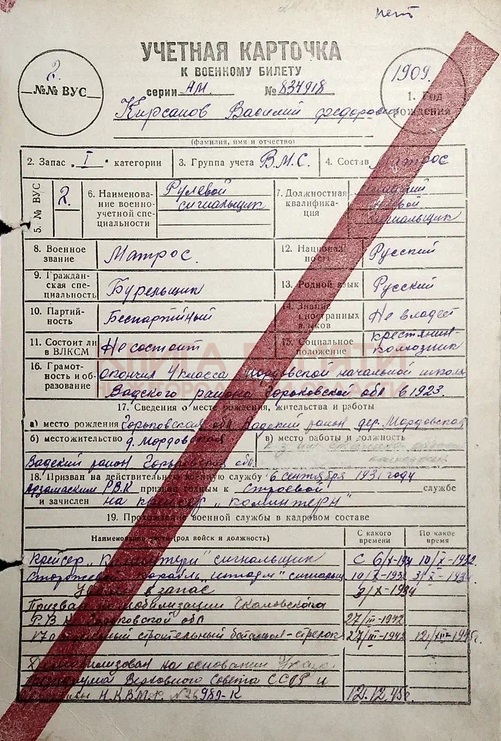 нет
УЧЕТНАЯ КАРТОЧКА
К ВОЕННОМУ БИЛЕТУ
серии АМ. № 834918
2.
№№ ВУС
1909.
1. Год рождения
Кирсанов Василий Федорович
(фамилия, имя и отчество)
2. Запас I категории
3. Группа учета В.М.С.
4. Состав Матрос
5. № ВУС
2.
6. Наименование военно-учетной специальности
Рулевой сигнальщик
7. Должностная квалификация
сигнальщик
8. Военное звание
Матрос.
12. Национальность
Русский
9. Гражданская специальность
Бурельщик
13. Родной язык
Русский
10. Партийность
Беспартийный
14. Знание иностранных языков
Не владеет
11. Состоит ли в ВЛКСМ
Не состоит
15. Социальное положение
крестьянин
колхозник
16. Грамотность и образование
окончил 4 класса Мордовской начальной школы
Вадского района Горьковской обл в 1923.
17. Сведения о месте рождения, жительства и работы
а) место рождения Горьковская обл. Вадский район дер. Мордовская
б) местожительство д. Мордовская
Вадский район Горьковская обл.
в) место работы и должность
18. Призван на действительную военную службу 6 сентября 1931 году
Арзамаским Р.В.К. признан годным к строевой службе
и зачислен на крейсер "Коминтерн"
19. Прохождение военной службы в кадровом составе
Наименование части (род войск и должность)
С какого времени
По какое время
крейсер "Коминтерн" сигнальщик
Сторожевой корабль "Шторм" сигнальщик
запас
Призван по мобилизации
Р.В.К. Горьковской обл
27/III-1942
строительный батальон - стрелок
Демобилизован на основании Указа
Президиума Верховного Совета СССР и
12.12.45г.